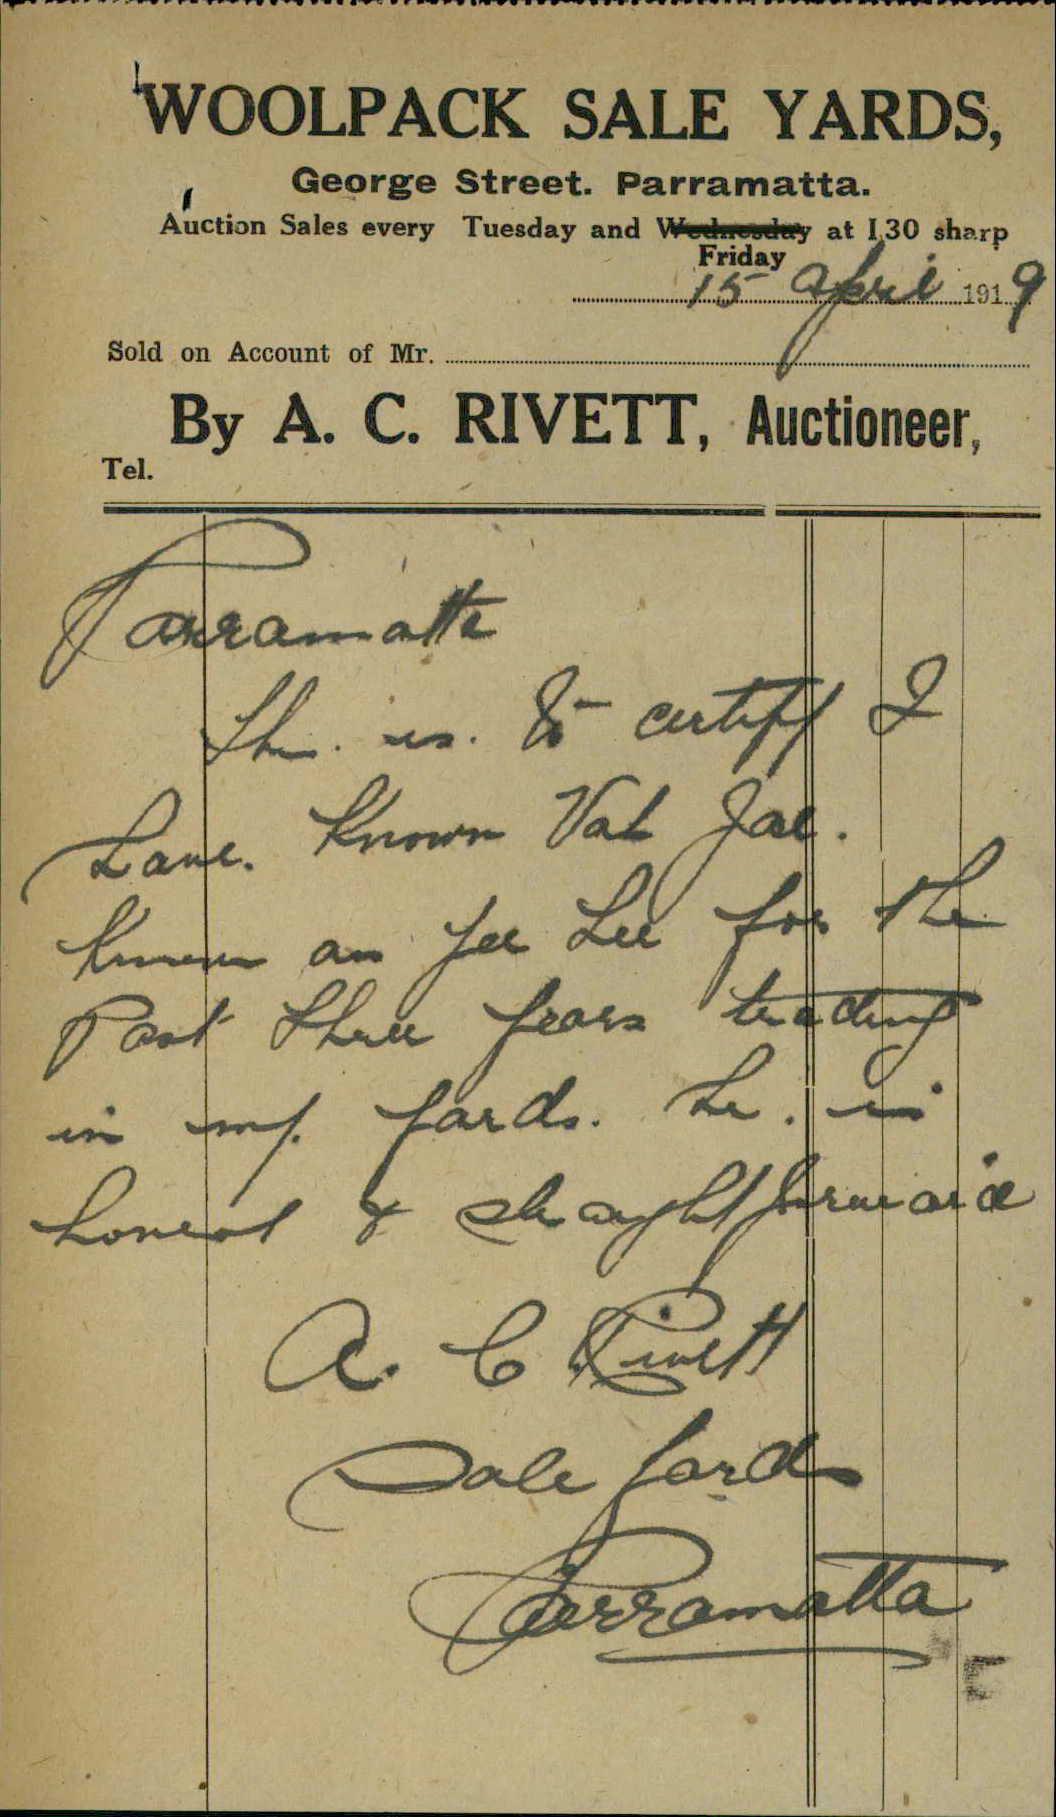 WOOLPACK SALE YARDS,
George Street. Parramatta.
Auction Sales every Tuesday and Wednesday at 1.30 sharp
Friday
15 April 1919
Sold on Account of Mr.
By A. C. RIVETT, Auctioneer,
Tel.
Parramatta
This is to certify I
have known Jae.
known as Yee Lee for the
Past three years trading
in my yards. he. is
honest & straightforward
A. C Rivett
Sale Yards
Parramatta